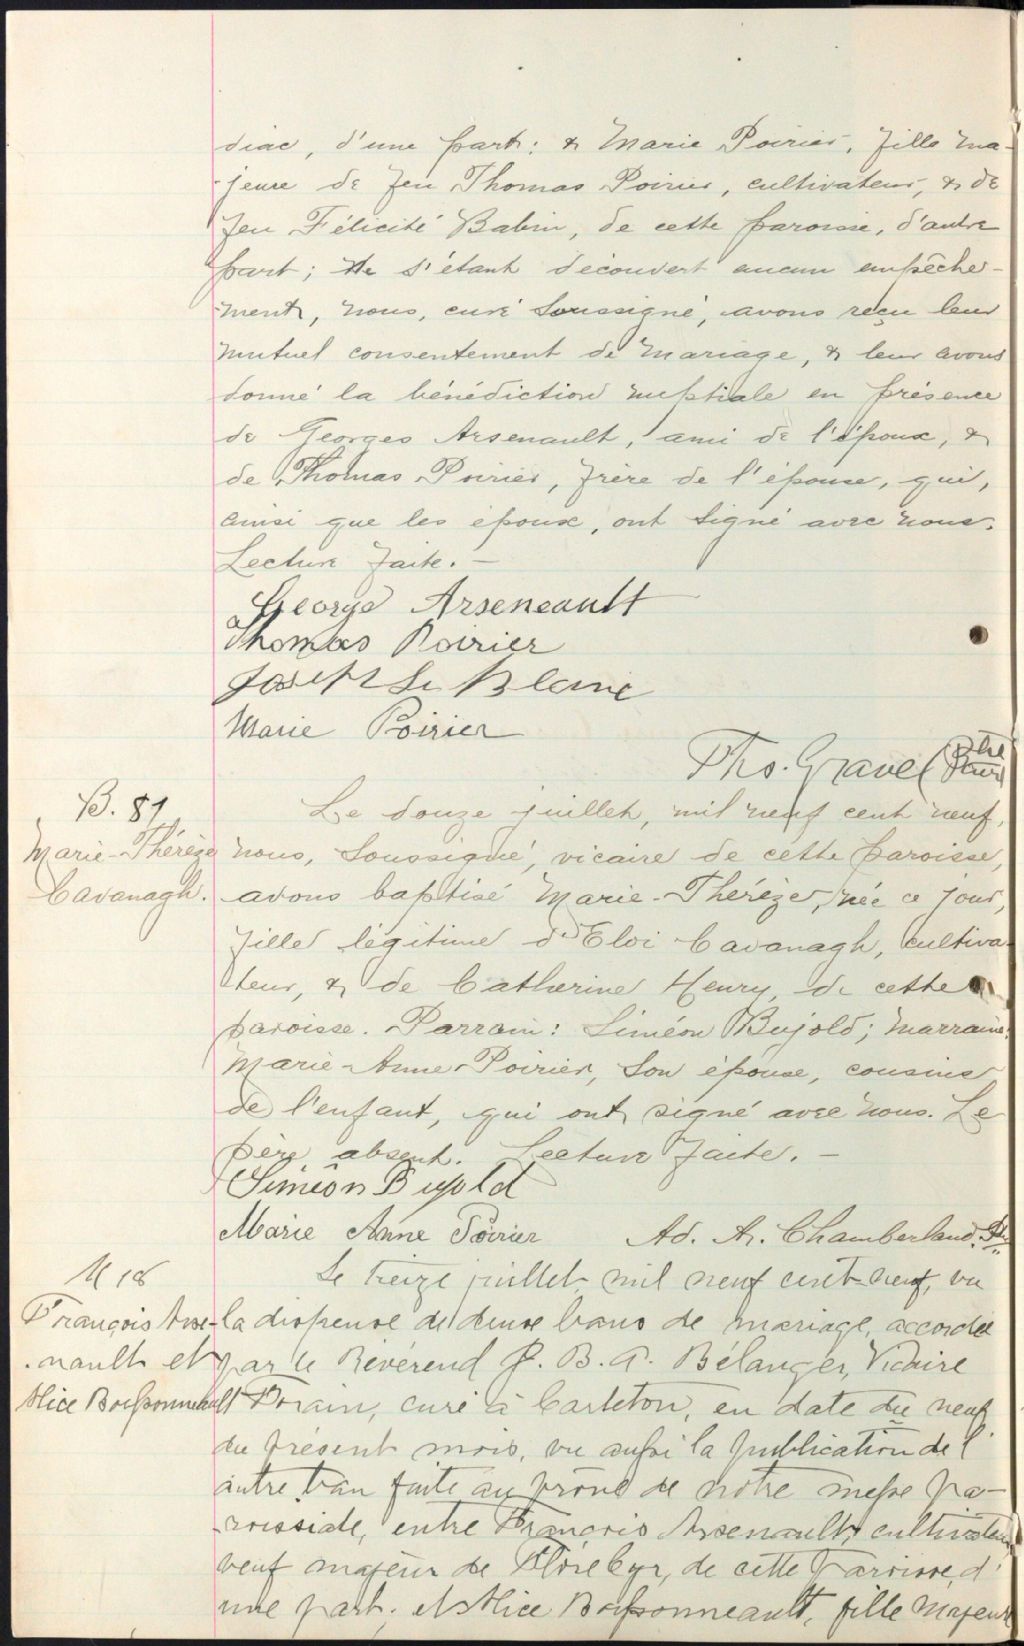 diac, d'une part: & Marie Poirier, fille ma-
jeure de feu Thomas Poirier, cultivateur, & de
feu Félicité Babin, de cette paroisse, d'autre
part; Ne s'étant découvert aucun empêche-
ment, nous, curé soussigné, avons reçu leur
mutuel consentement de mariage, & leur avons
donné la bénédiction nuptiale en présence
de Georges Arsenault, ami de l'époux, &
de Thomas Poirier, frère de l'épouse, qui,
ainsi que les époux, ont signé avec nous.
Lecture faite. —
George Arseneault
Thomas Poirier
Joseph Le Blanc
Marie Poirier
Ths. Gravel Ptre
Curé
B. 81
Marie-Thérèze
Cavanagh.
Le douze juillet, mil neuf cent neuf,
nous, soussigné, vicaire de cette paroisse,
avons baptisé Marie-Thérèze, née ce jour,
fille légitime d'Eloi Cavanagh, cultiva-
teur, & de Catherine Henry, de cette
paroisse. Parrain: Siméon Bujold; marraine:
Marie-Anne Poirier, son épouse, cousins
de l'enfant, qui ont signé avec nous. Le
père absent. Lecture faite. —
Siméon Bujold
Marie Anne Poirier Ad. A. Chamberland, Ptr
M 18
François Arse-
nault et
Alice Boissonneault
Le treize juillet, mil neuf cent-neuf, vu
la dispense de deux bans de mariage, accordée
par le Révérend J. B. A. Bélanger, Vicaire
Forain, curé à Carleton, en date du neuf
du présent mois, vu aussi la publication de l'
autre ban faite au prône de notre messe pa-
roissiale, entre François Arsenault, cultivateur,
veuf majeur de Cyr, de cette paroisse, d'
une part; et Alice Boissonneault, fille majeure